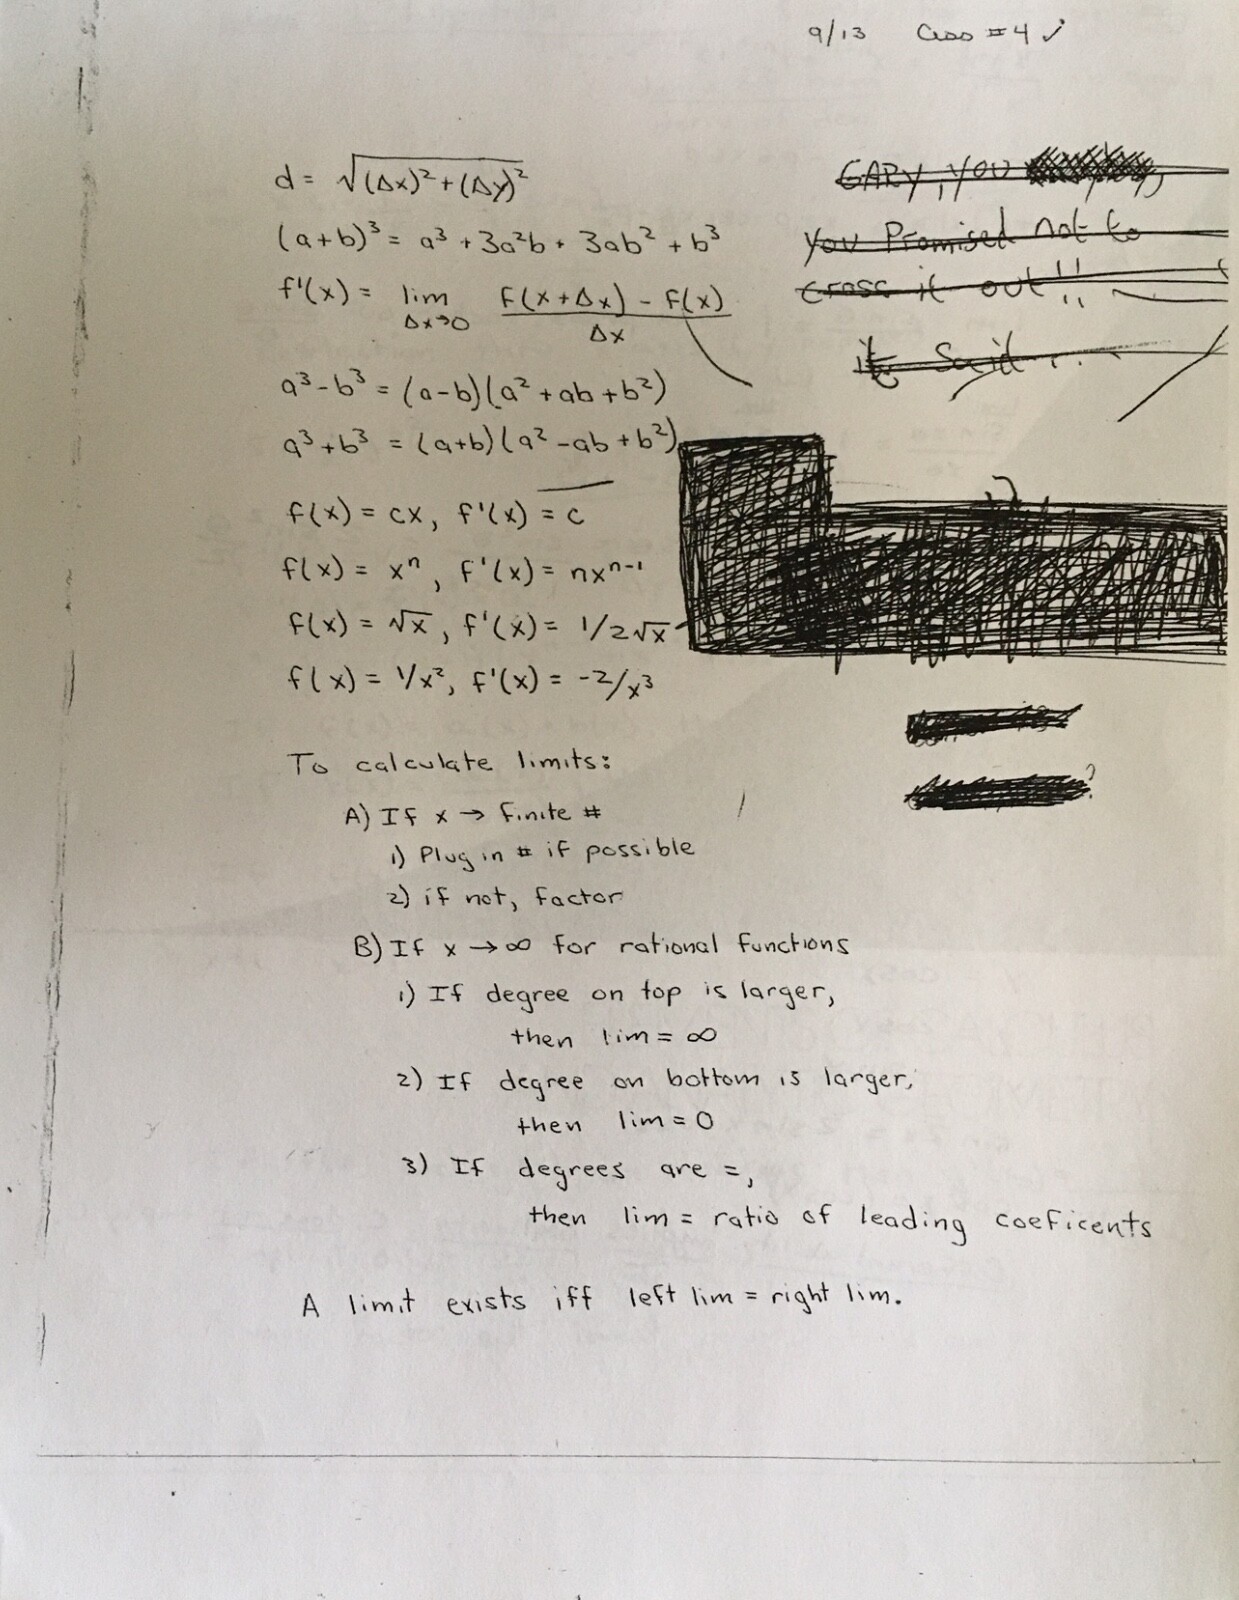 9/13 Class #4 ✓
d = √(Δx)² + (Δy)²
(a+b)³ = a³ + 3a²b + 3ab² + b³
f'(x) = lim Δx→0 f(x+Δx) - f(x) / Δx
a³-b³ = (a-b)(a² + ab + b²)
a³+b³ = (a+b)(a² - ab + b²)
f(x) = cx, f'(x) = c
f(x) = xⁿ, f'(x) = nxⁿ⁻¹
f(x) = √x, f'(x) = 1/2√x
f(x) = 1/x², f'(x) = -2/x³
GARY, you
you Promised not to
cross it out!!
it said...
?
To calculate limits:
A) If x → finite #
1) Plug in # if possible
2) if not, factor
B) If x → ∞ for rational functions
1) If degree on top is larger,
then lim = ∞
2) If degree on bottom is larger,
then lim = 0
3) If degrees are =,
then lim = ratio of leading coeficents
A limit exists iff left lim = right lim.